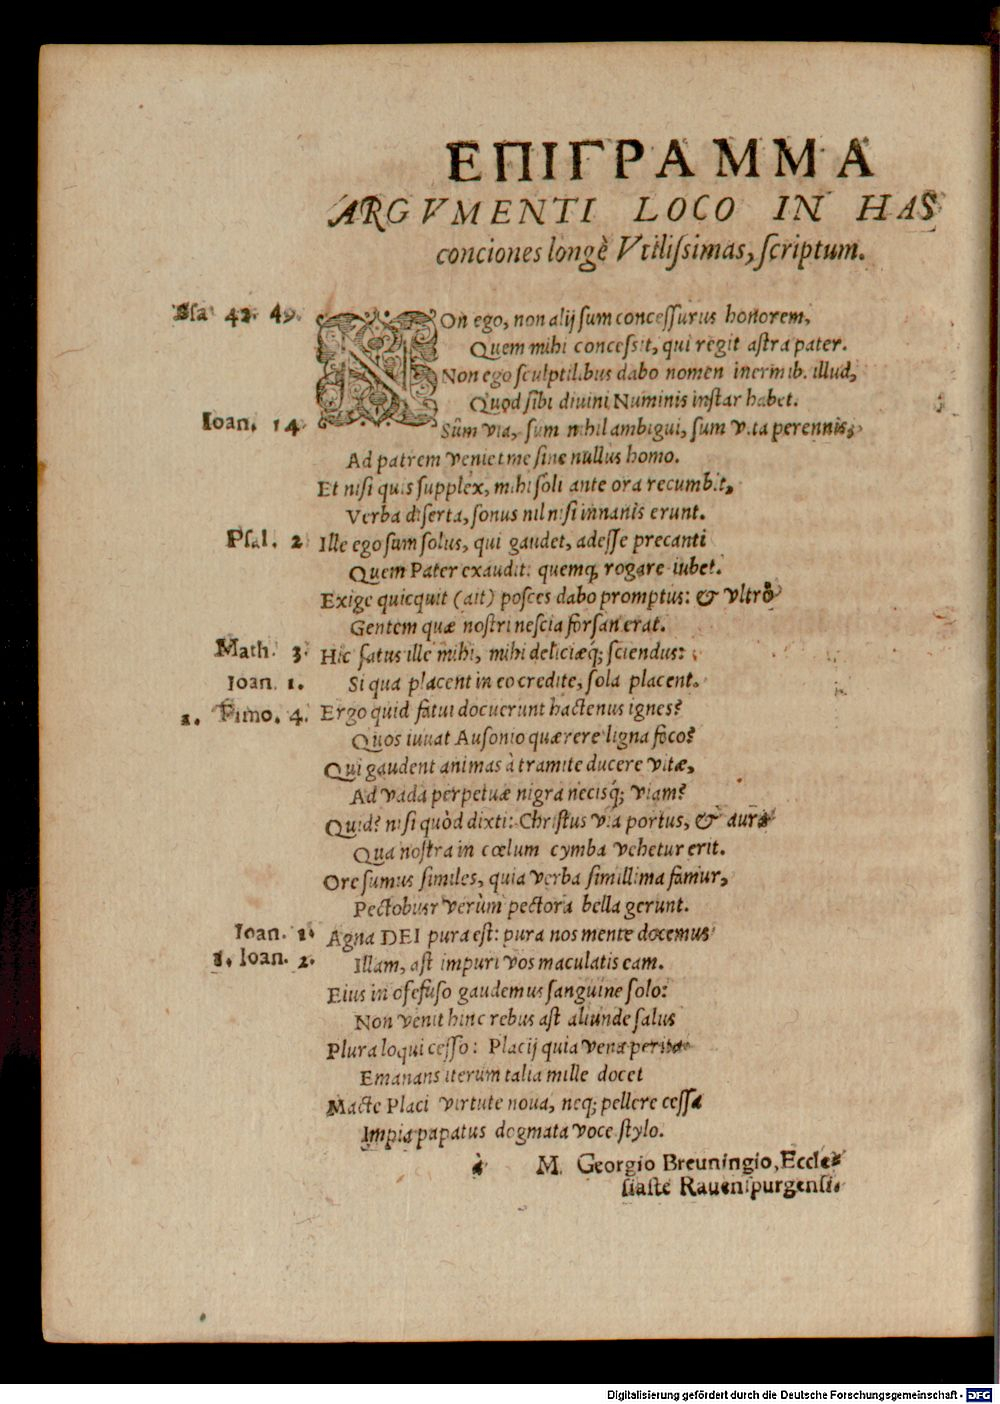 ΕΠΙΓΡΑΜΜΑ
ARGVMENTI LOCO IN HAS
conciones longè Vtiliſsimas, ſcriptum.
Eſa 42. 49.
NOn ego, non alij ſum conceſſurus honorem,
Quem mihi conceſsit, qui regit aſtra pater.
Non ego ſculptilibus dabo nomen inermib. illud,
Quod ſibi diuini Numinis inſtar habet.
Ioan. 14
Sum via, ſum nihil ambigui, ſum vita perennis,
Ad patrem veniet me ſine nullus homo.
Et niſi quis ſupplex, mihi ſoli ante ora recumbit,
Verba diſerta, ſonus nil niſi innanis erunt.
Pſal. 2
Ille ego ſum ſolus, qui gaudet, adeſſe precanti
Quem Pater exaudit: quemq; rogare iubet.
Exige quicquit (ait) poſces dabo promptus: & vltro
Gentem quæ noſtri neſcia forſan erat.
Math. 3.
Hic ſatus ille mihi, mihi deliciæq; ſciendus:
Ioan. 1.
Si qua placent in eo credite, ſola placent.
1. Timo. 4.
Ergo quid fatui docuerunt hactenus ignes?
Quos iuuat Auſonio quærere ligna foco?
Qui gaudent animas à tramite ducere vitæ,
Ad vada perpetuæ nigra necisq́; viam?
Quid? niſi quòd dixti: Chriſtus via portus, & aura
Qua noſtra in cœlum cymba vehetur erit.
Ore ſumus ſimiles, quia verba ſimillima famur,
Pectobusr verùm pectora bella gerunt.
Ioan. 1.
Agna DEI pura eſt: pura nos mente docemus
1. Ioan. 2.
Illam, aſt impuri vos maculatis eam.
Eius in ofefuſo gaudemus ſanguine ſolo:
Non venit hinc rebus aſt aliunde ſalus
Plura loqui ceſſo: Placij quia vena perita
Emanans iterum talia mille docet
Macte Placi virtute noua, neq; pellere ceſſa
Impia papatus dogmata voce ſtylo.
à M. Georgio Breuningio, Eccle-
ſiaſte Rauenſpurgenſi.
Digitalisierung gefördert durch die Deutsche Forschungsgemeinschaft - DFG